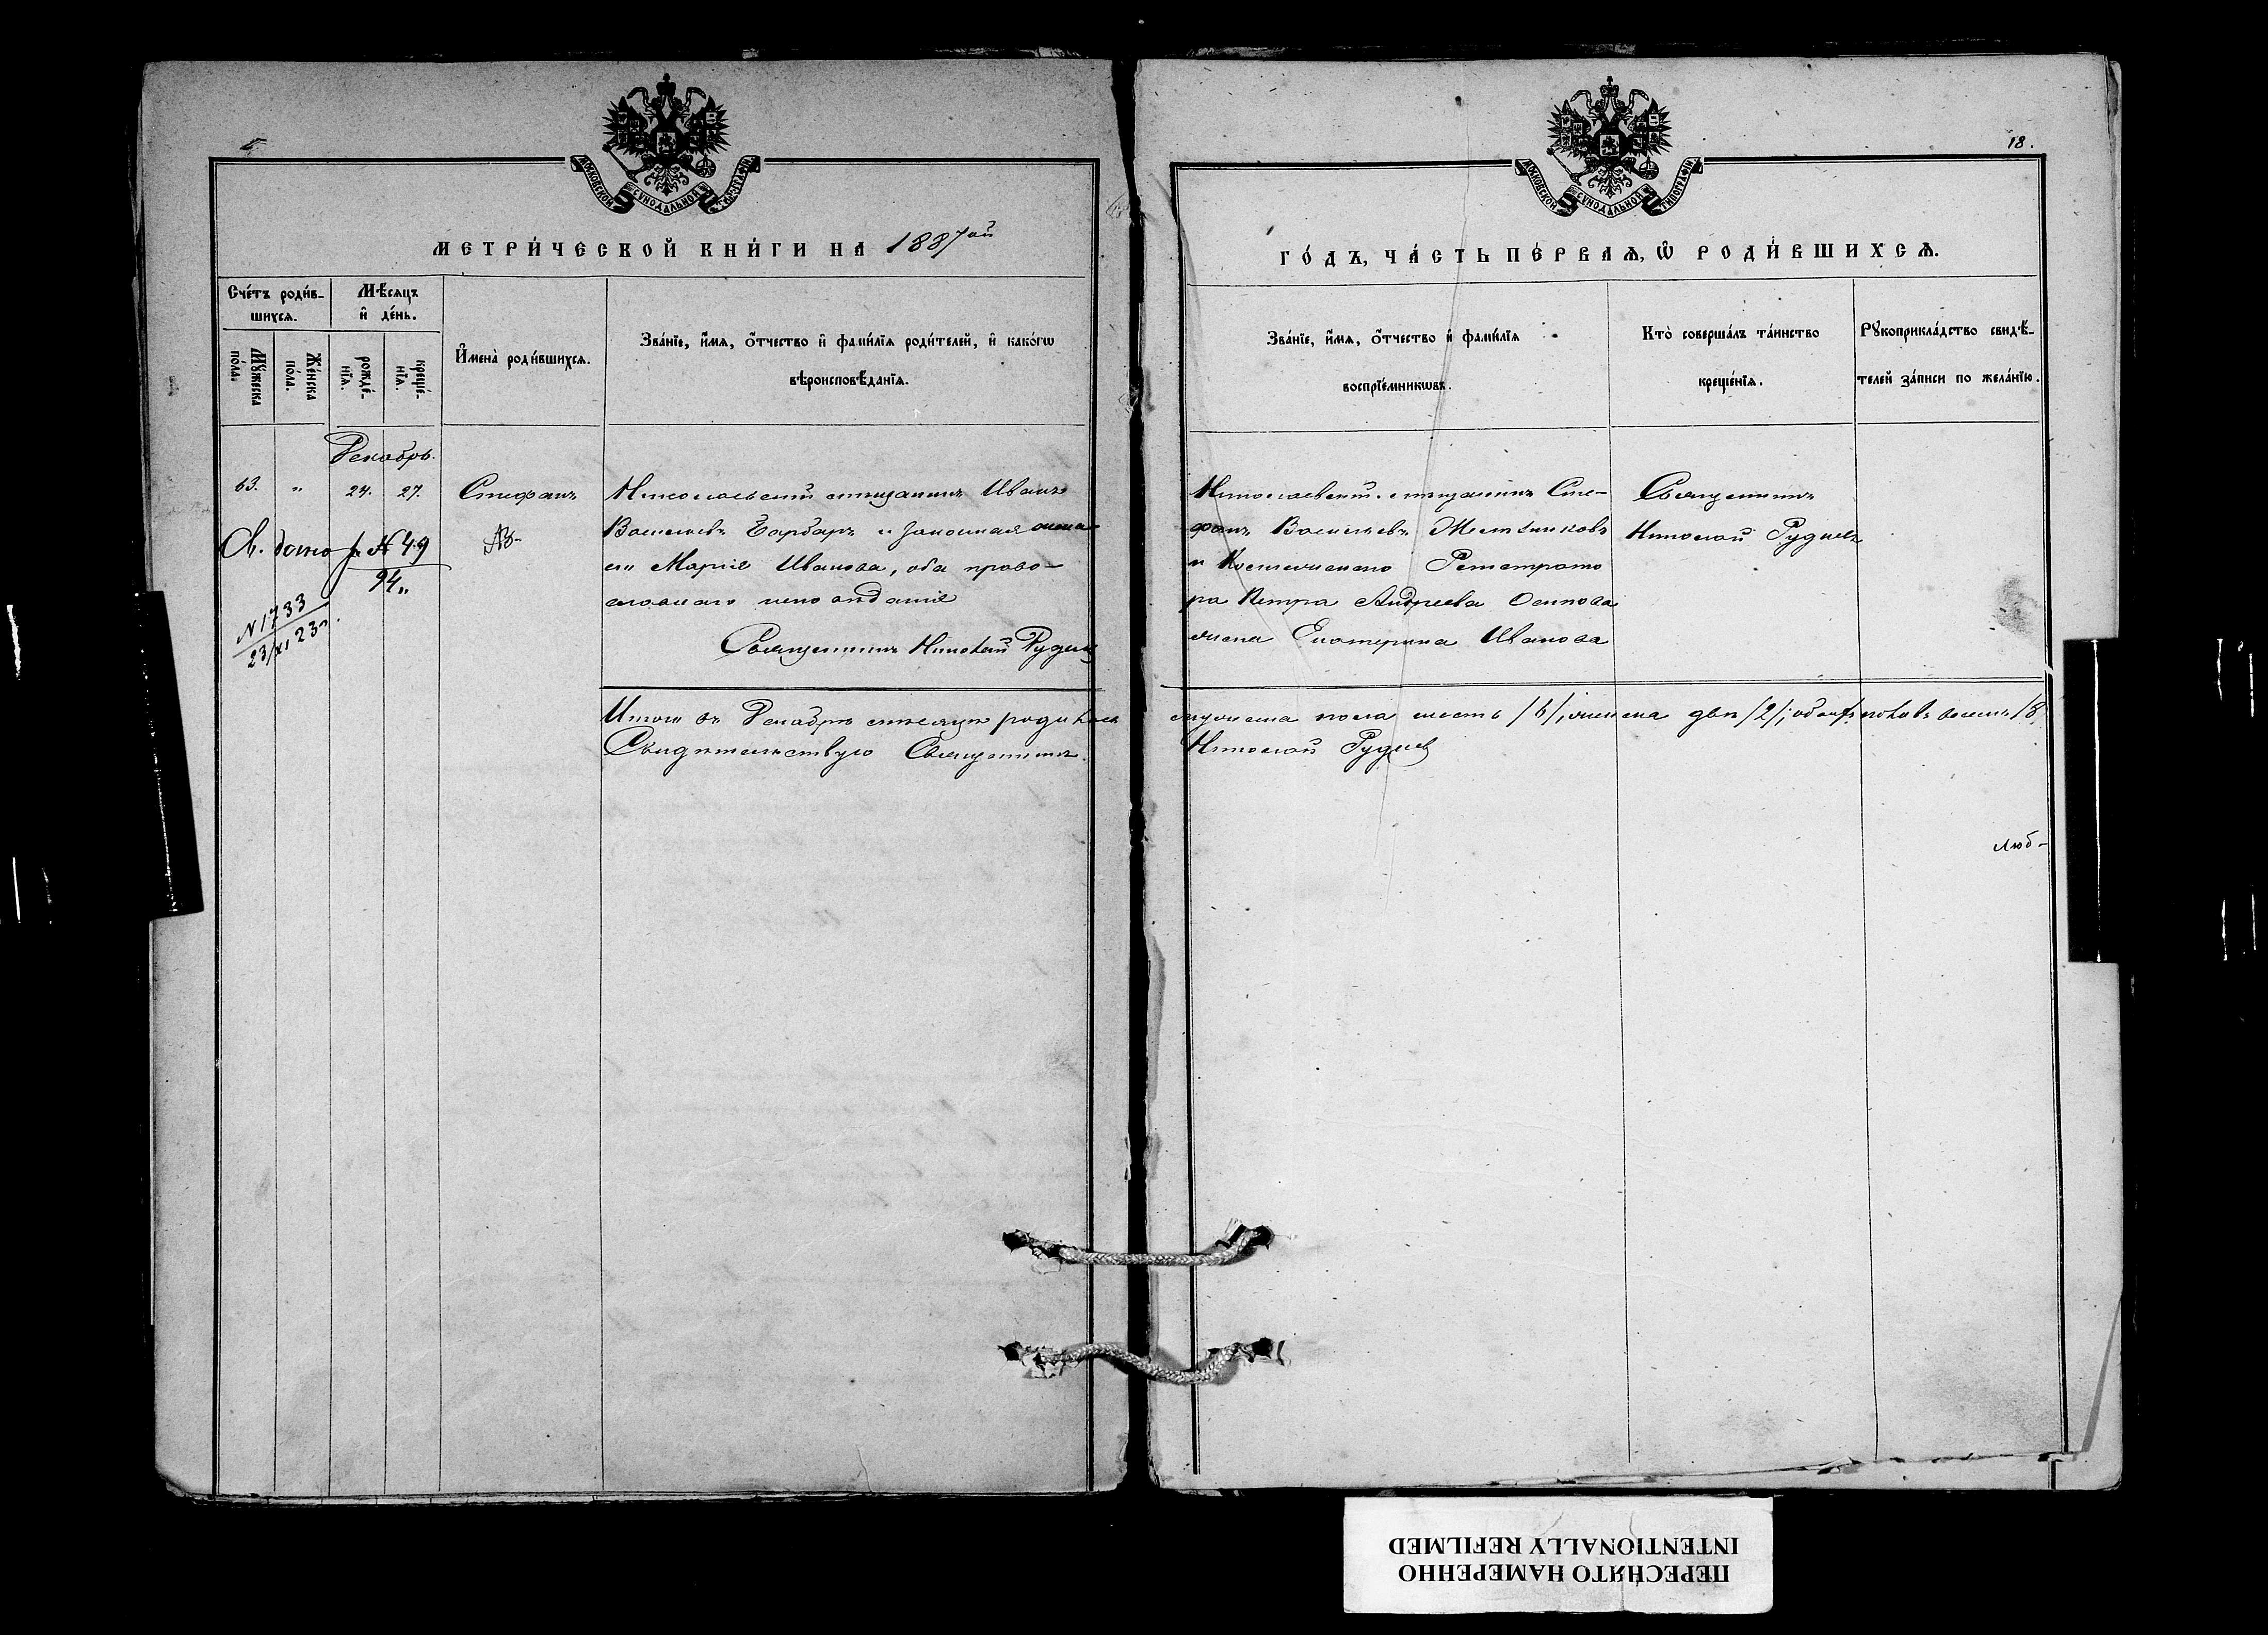 МОСКОВСКОЙ СѴНОДАЛЬНОЙ ТИПОГРАФІИ
МЕТРИ́ЧЕСКОЙ КНИ́ГИ НА 1887ой
Сче́тъ роди́в-
шихсѧ.
Мѣ́сяцъ
и҆ де́нь.
Мꙋ́жеска
по́ла.
Же́нска
по́ла.
рожде́-
нїѧ.
креще́-
нїѧ.
И҆мена̀ роди́вшихсѧ.
Зва́нїе, и҆́мѧ, ѻ҆́тчество и҆ фами́лїѧ роди́телей, и҆ како́гѡ
вѣроисповѣ́данїѧ.
Декабрь.
63. " 24. 27. Стефанъ
Николаевскій мѣщанинъ Иванъ
Васильевъ Барбаръ и законная жена
его Марія Иванова, оба право-
славнаго исповѣданія
Священникъ Николай Рудневъ
Св. дано № 49
94
N 1733
23/XI 23
Итого въ Декабрѣ мѣсяцѣ родилось
Свидѣтельствую Священникъ
МОСКОВСКОЙ СѴНОДАЛЬНОЙ ТИПОГРАФІИ
18.
ГО́ДЪ, ЧА́СТЬ ПЕ́РВАѦ, Ѽ РОДИ́ВШИХСѦ.
Зва́нїе, и҆́мѧ, ѻ҆́тчество и҆ фами́лїѧ
воспрїе́мникѡвъ.
Кто̀ соверша́лъ та́инство
креще́нїѧ.
Рꙋкоприкла́дство свидѣ́-
телей за́писи по жела́нїю.
Николаевскій мѣщанинъ Сте-
фанъ Васильевъ Мѣтниковъ
и Коллежскаго Регистрато
ра Петра Андреева Осипова
жена Екатерина Иванова
Священникъ
Николай Рудневъ
мужеска пола шесть /6/, женска двѣ /2/; обоего половъ восемь /8
Николай Рудневъ
Люб-
ПЕРЕСНЯТО НАМЕРЕННО
INTENTIONALLY REFILMED